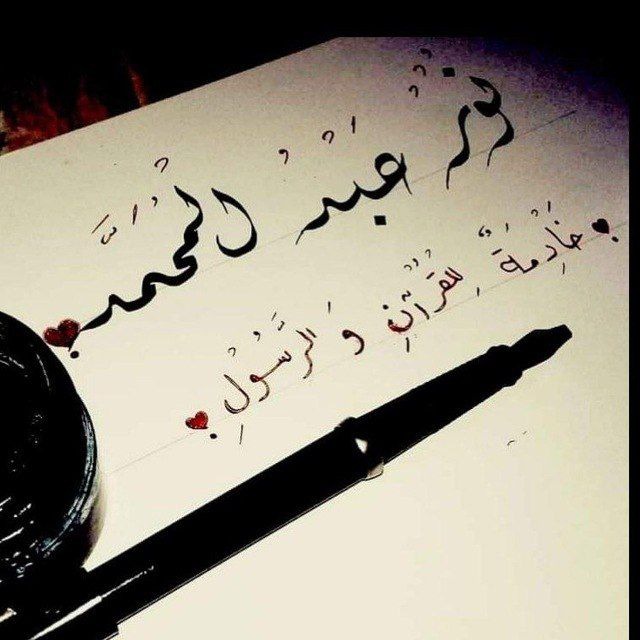 نُور عَبْدُ المُحَمَّد
خَادِمَةٌ لِلقُرْآنِ وَ الرَّسُوْلِ